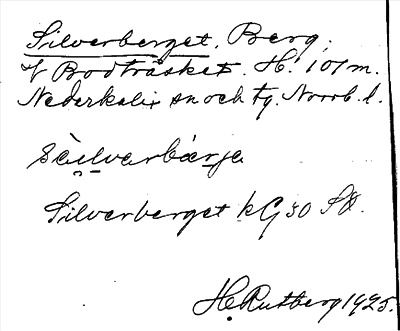 Silverberget. Berg.
V Bodträsket. H. 101 m.
Nederkalix sn och tg. Norrb. l.
Silverberget kG 30 SV.
H. Rutberg 1925.